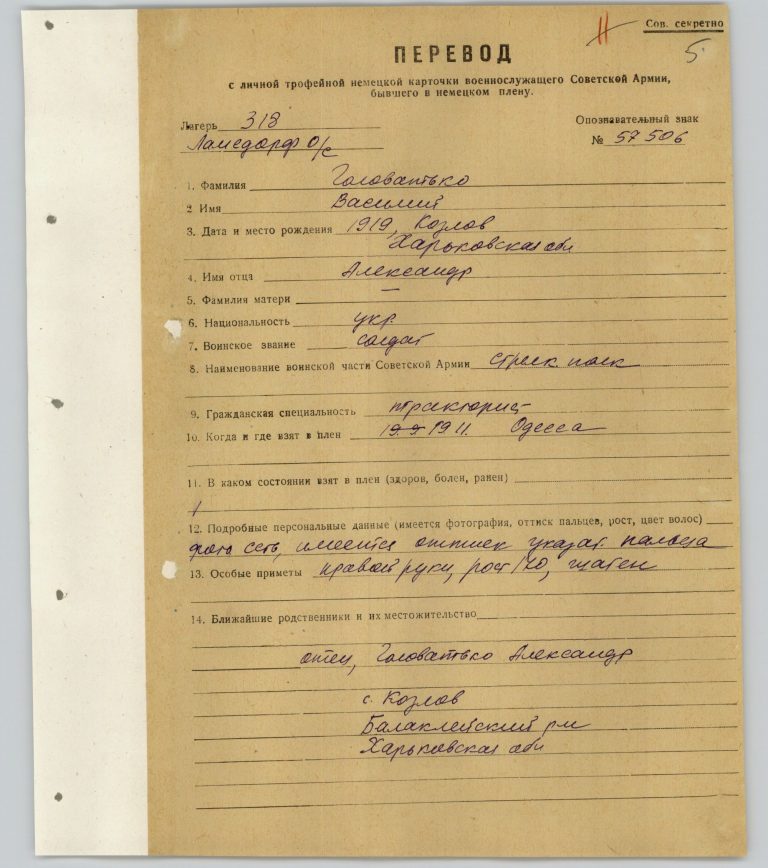 11
Сов. секретно
5.
ПЕРЕВОД
с личной трофейной немецкой карточки военнослужащего Советской Армии,
бывшего в немецком плену.
Лагерь 318
Ламсдорф О/с
Опознавательный знак
№ 57506
1. Фамилия Головатько
2 Имя Василий
3. Дата и место рождения 1919, Козлов
Харьковская обл
4. Имя отца Александр
5. Фамилия матери —
6. Национальность укр.
7. Воинское звание солдат
8. Наименование воинской части Советской Армии стрелк. полк
9. Гражданская специальность тракторист
10. Когда и где взят в плен Одесса
11. В каком состоянии взят в плен (здоров, болен, ранен)
12. Подробные персональные данные (имеется фотография, оттиск пальцев, рост, цвет волос)
фото есть, имеется оттиск указат. пальца
13. Особые приметы правой руки, рост 170, шатен
14. Ближайшие родственники и их местожительство
отец, Головатько Александр
с. Козлов
Балаклейский р-н
Харьковская обл